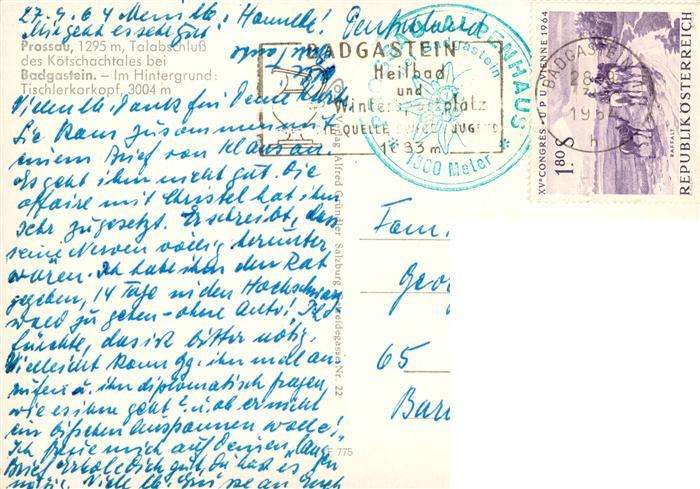 27.9.64 Meine lb. Hannele!
Mir geht es sehr gut!
Deutschland
Prossau, 1295 m, Talabschluß
des Kötschachtales bei
Badgastein. – Im Hintergrund:
Tischlerkarkopf, 3004 m
Vielen lb. Dank für Deine Karte
Sie kam zusammen mit
einem Brief von Klaus an.
Es geht ihm nicht gut. Die
Affaire mit Christel hat ihm
sehr zugesetzt. Er schreibt, dass
seine Nerven völlig herunter
wären. Ich habe ihm den Rat
gegeben, 14 Tage in den Hochschwarz
wald zu gehen - ohne Auto! Ich
fürchte, das ist bitter nötig.
Vielleicht kann Gg. ihn mal an
rufen u. ihn diplomatisch fragen,
wie es ihm geht? u. ob er nicht
ein bißchen ausspannen wolle!
Ich freue mich auf Deinen "langen
Brief. Erhole Dich gut, Du hast es
nötig. Viele lb. Grüsse an Euch
BADGASTEIN
Heilbad
und
Wintersportplatz
1083 m
1300 Meter
BADGASTEIN
1964
XVe CONGRES · UPU · VIENNE 1964
1.80 S
REPUBLIK ÖSTERREICH
Verlag Alfred Gründler Salzburg
Nr. 22
775
Fam.
Geor
65
Bar